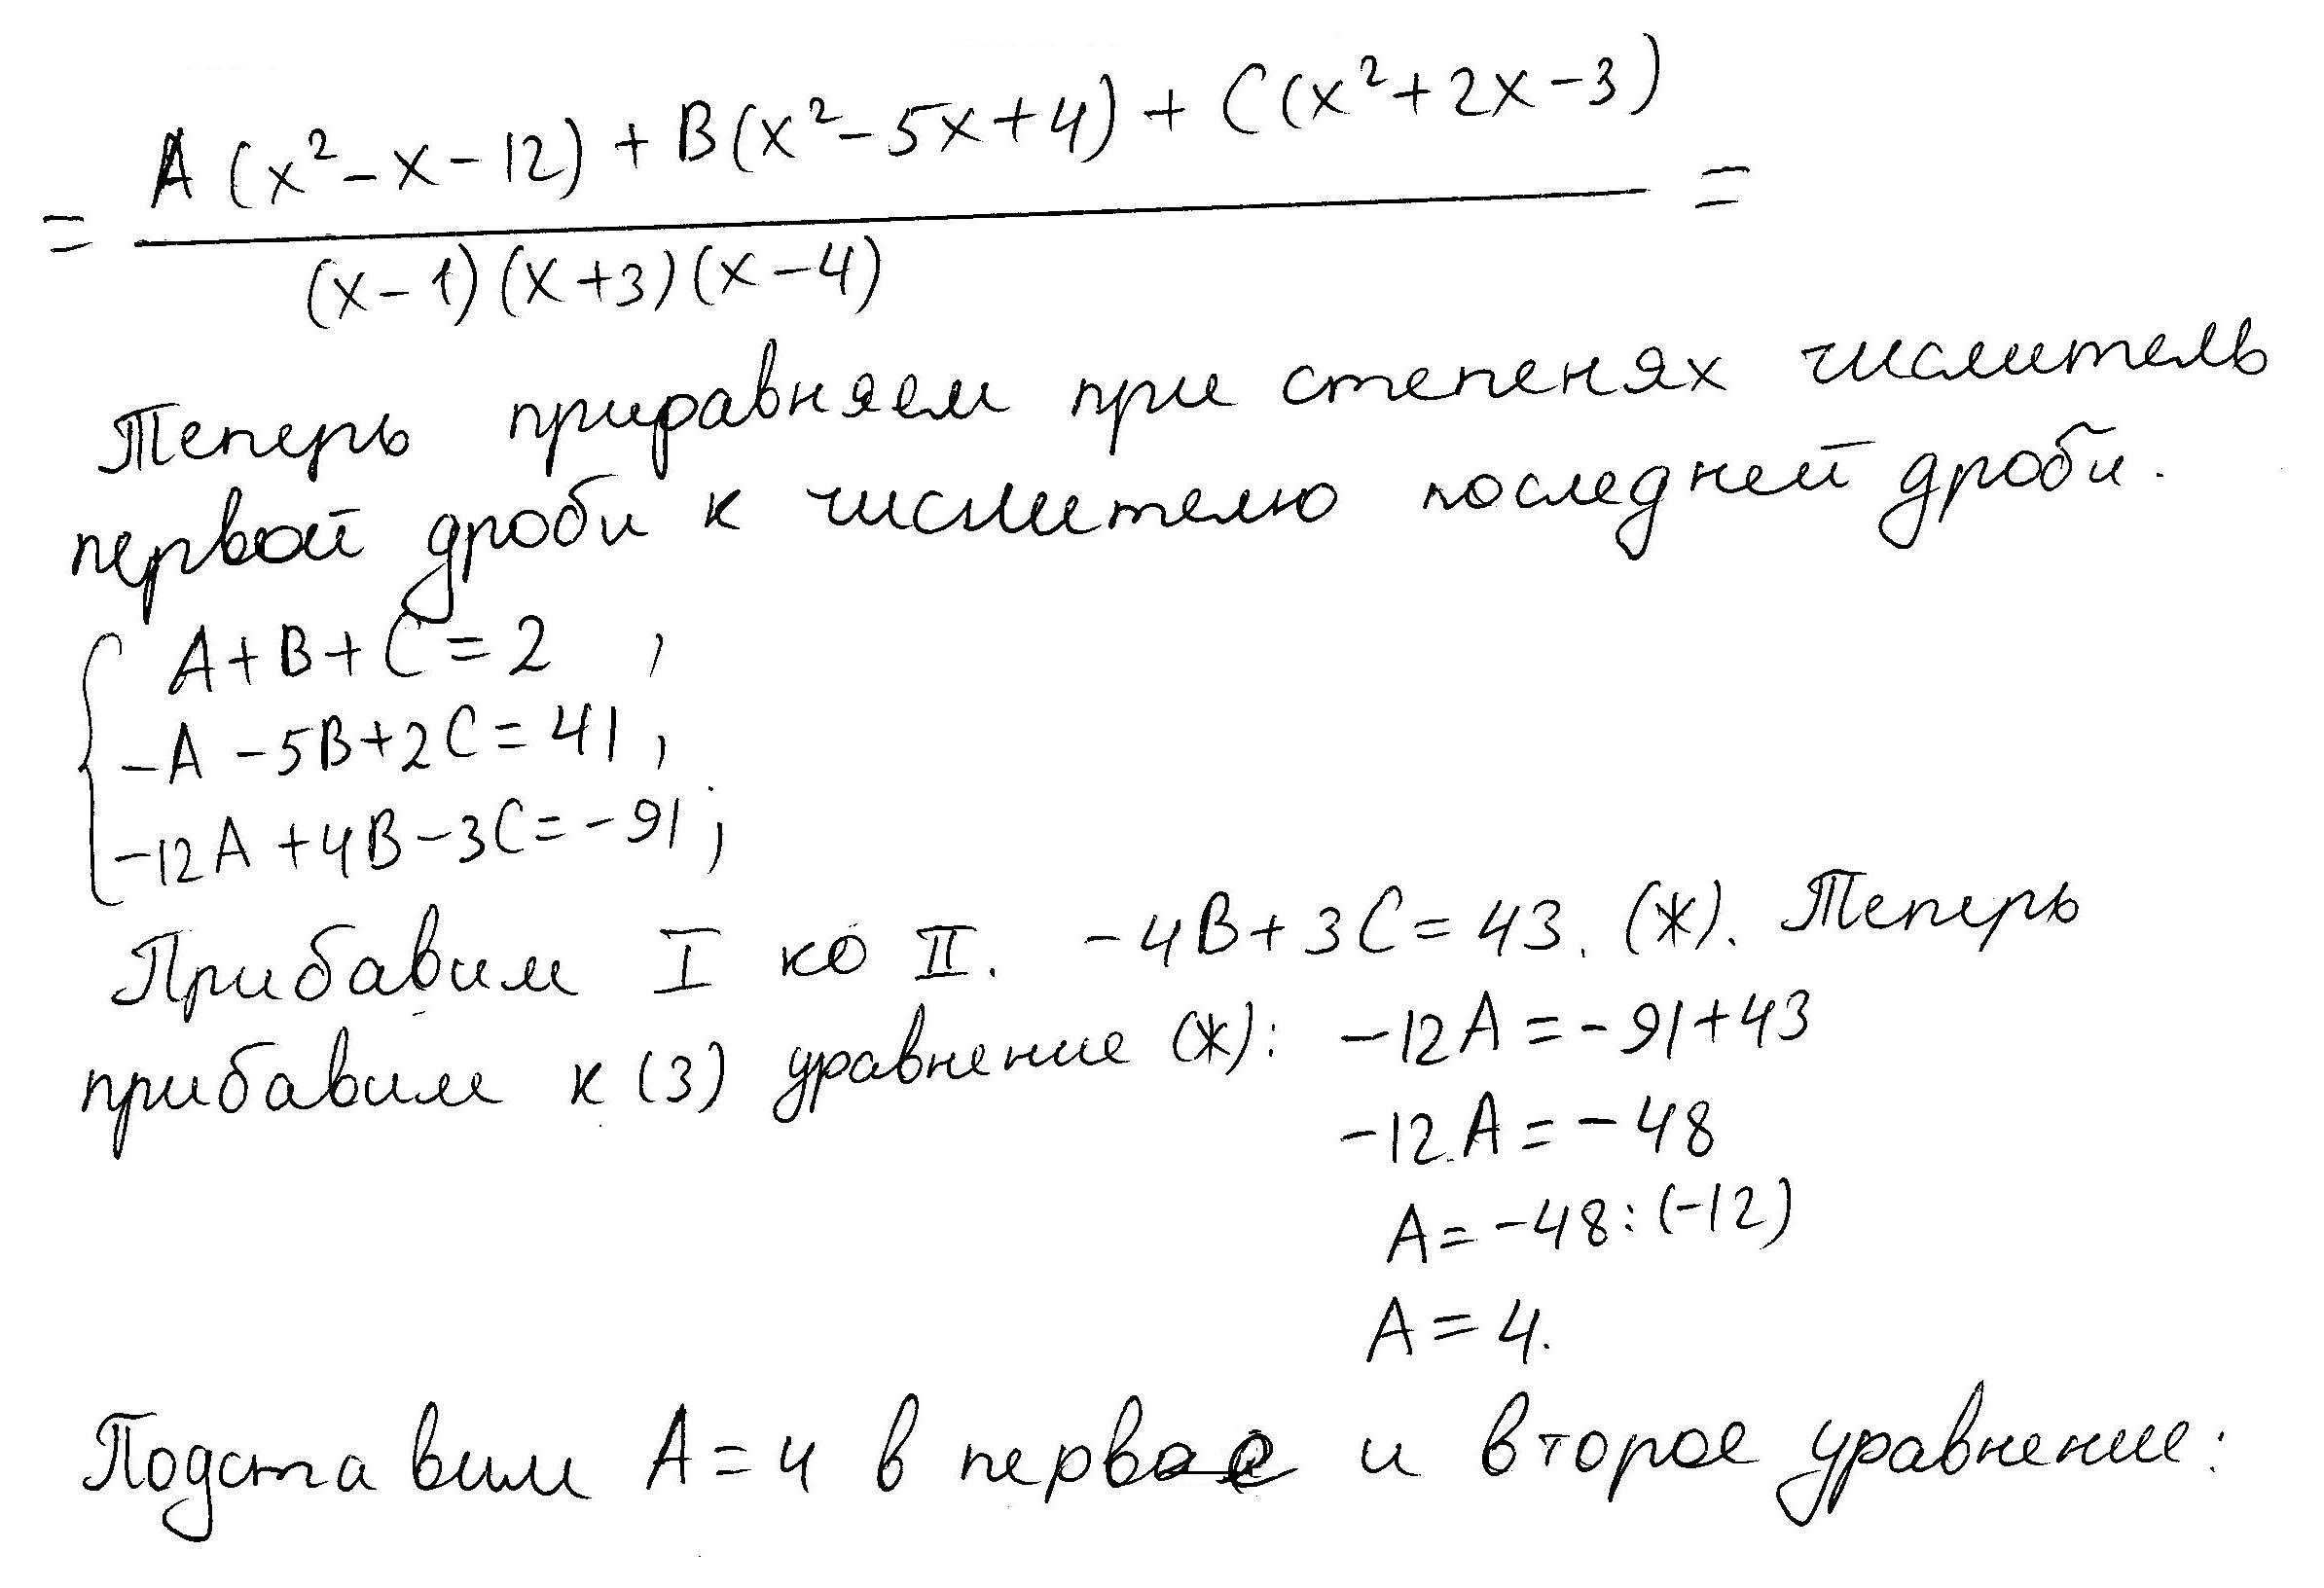 = A(x²-x-12)+B(x²-5x+4)+C(x²+2x-3) / (x-1)(x+3)(x-4) =
Теперь приравняем при степенях числитель
первой дроби к числителю последней дроби.
A+B+C=2 ,
-A-5B+2C=41,
-12A+4B-3C=-91;
Прибавим I ко II. -4B+3C=43. (ж). Теперь
прибавим к (3) уравнение (ж): -12A=-91+43
-12A=-48
A=-48:(-12)
A=4.
Подставим A=4 в первое и второе уравнение: